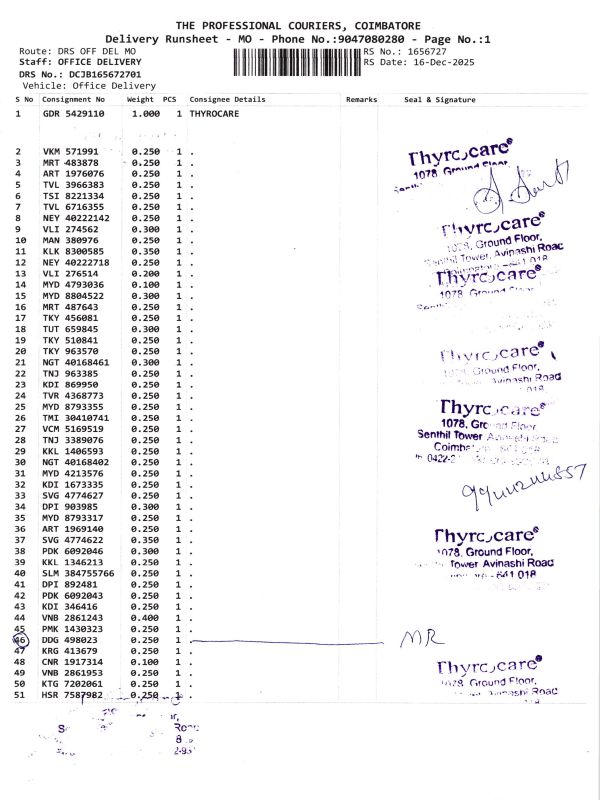 THE PROFESSIONAL COURIERS, COIMBATORE
Delivery Runsheet - MO - Phone No.:9047080280 - Page No.:1
Route: DRS OFF DEL MO RS No.: 1656727
Staff: OFFICE DELIVERY RS Date: 16-Dec-2025
DRS No.: DCJB165672701
Vehicle: Office Delivery
S No Consignment No Weight PCS Consignee Details Remarks Seal & Signature
1 GDR 5429110 1.000 1 THYROCARE
2 VKM 571991 0.250 1 .
3 MRT 483878 0.250 1 .
4 ART 1976076 0.250 1 .
5 TVL 3966383 0.250 1 .
6 TSI 8221334 0.250 1 .
7 TVL 6716355 0.250 1 .
8 NEY 40222142 0.250 1 .
9 VLI 274562 0.300 1 .
10 MAN 380976 0.250 1 .
11 KLK 8300585 0.350 1 .
12 NEY 40222718 0.250 1 .
13 VLI 276514 0.200 1 .
14 MYD 4793036 0.100 1 .
15 MYD 8804522 0.300 1 .
16 MRT 487643 0.250 1 .
17 TKY 456081 0.250 1 .
18 TUT 659845 0.300 1 .
19 TKY 510841 0.250 1 .
20 TKY 963570 0.250 1 .
21 NGT 40168461 0.300 1 .
22 TNJ 963385 0.250 1 .
23 KDI 869950 0.250 1 .
24 TVR 4368773 0.250 1 .
25 MYD 8793355 0.250 1 .
26 TMI 30410741 0.250 1 .
27 VCM 5169519 0.250 1 .
28 TNJ 3389076 0.250 1 .
29 KKL 1406593 0.250 1 .
30 NGT 40168402 0.250 1 .
31 MYD 4213576 0.250 1 .
32 KDI 1673335 0.250 1 .
33 SVG 4774627 0.250 1 .
34 DPI 903985 0.300 1 .
35 MYD 8793317 0.250 1 .
36 ART 1969140 0.250 1 .
37 SVG 4774622 0.350 1 .
38 PDK 6092046 0.300 1 .
39 KKL 1346213 0.250 1 .
40 SLM 384755766 0.250 1 .
41 DPI 892481 0.250 1 .
42 PDK 6092043 0.250 1 .
43 KDI 346416 0.250 1 .
44 VNB 2861243 0.400 1 .
45 PMK 1430323 0.250 1 .
46 DDG 498023 0.250 1 . MR
47 KRG 413679 0.250 1 .
48 CNR 1917314 0.100 1 .
49 VNB 2861953 0.250 1 .
50 KTG 7202061 0.250 1 .
51 HSR 7587982 0.250 1 .
Thyrocare
1078, Ground Floor
Thyrocare
1078, Ground Floor,
Senthil Tower, Avinashi Road
Thyrocare
1078, Ground
Thyrocare
Ground Floor,
Avinashi Road
Thyrocare
1078, Ground Floor
Senthil Tower Avinashi Road
Thyrocare
1078, Ground Floor,
Tower Avinashi Road
641 018
Thyrocare
1078, Ground Floor,
Avinashi Road